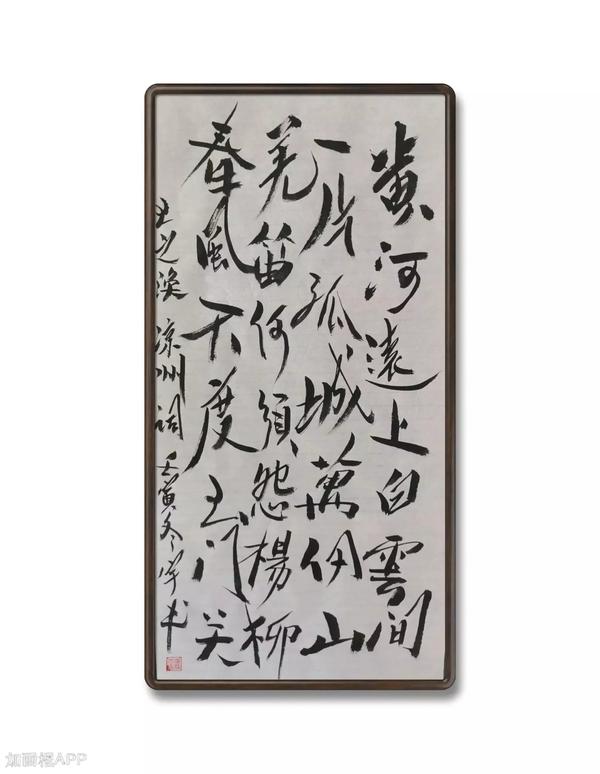 黄河遠上白雲间
一片孤城萬仞山
羌笛何須怨楊柳
春風不度玉门关
王之涣 凉州词 壬寅冬 书
加画框APP